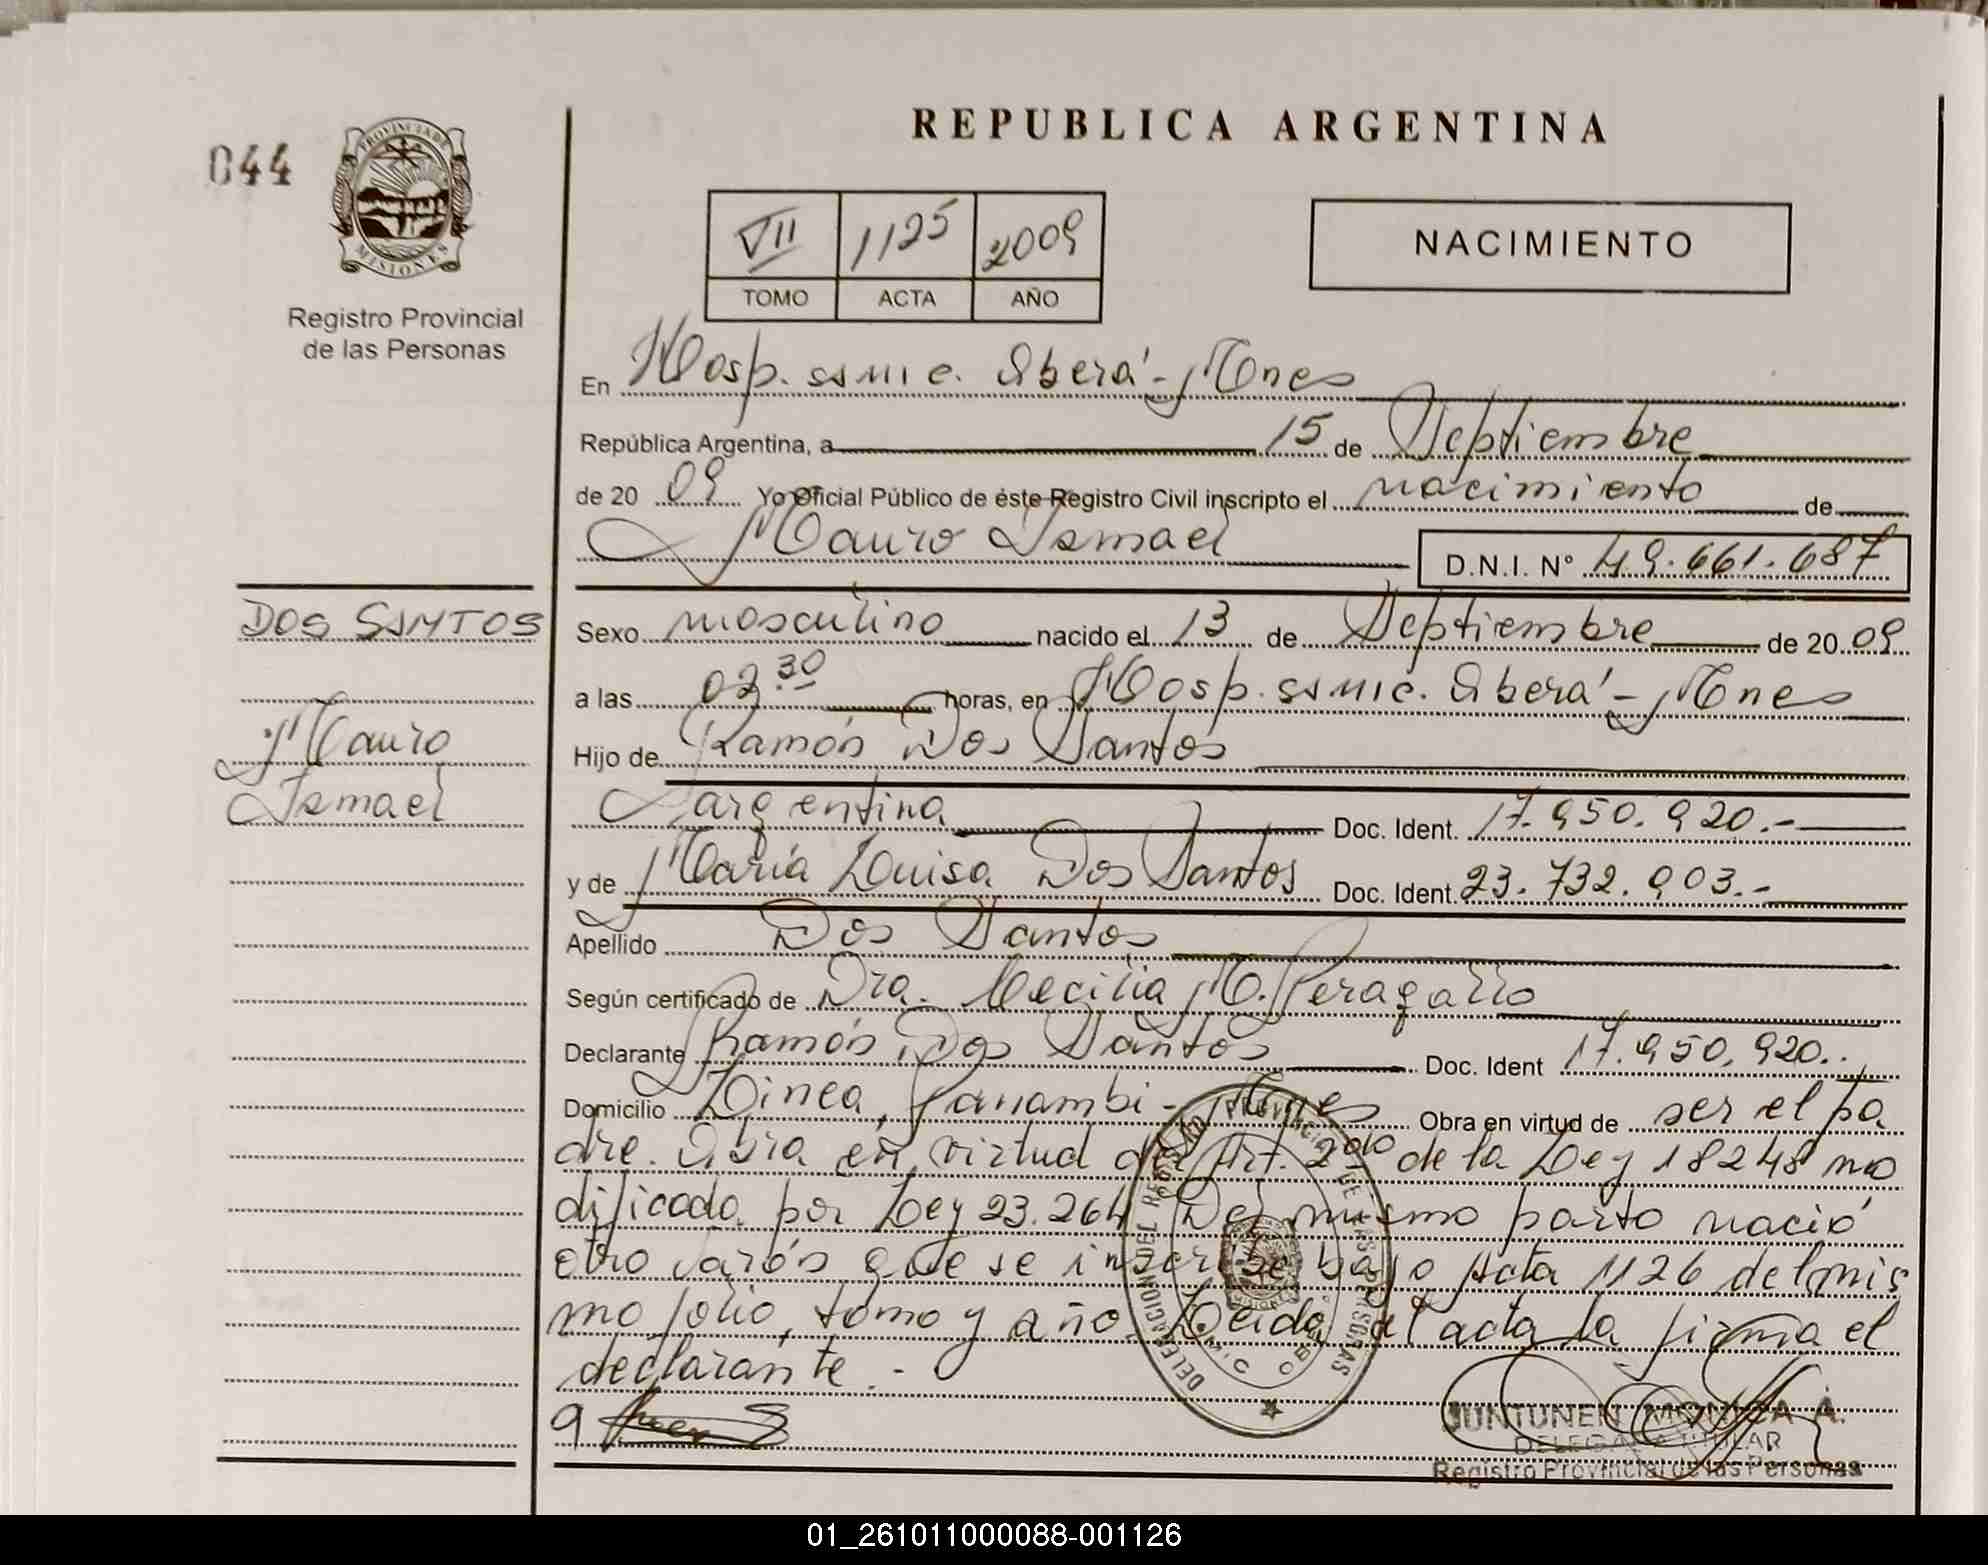 REPUBLICA ARGENTINA
044
PROVINCIA DE
MISIONES
Registro Provincial
de las Personas
VII 1125 2009
TOMO ACTA AÑO
NACIMIENTO
En Hosp. SAMIC. Oberá - Mnes
República Argentina, a 15 de Septiembre
de 20 09 Yo Oficial Público de éste Registro Civil inscripto el nacimiento de
Mauro Ismael D.N.I. Nº 49.661.687
DOS SANTOS
Mauro
Ismael
Sexo masculino nacido el 13 de Septiembre de 20 09
a las 02.30 horas, en Hosp. SAMIC. Oberá - Mnes
Hijo de Ramón Dos Santos
argentina Doc. Ident. 17.950.920.-
y de María Luisa Dos Santos Doc. Ident. 23.732.903.-
Apellido Dos Santos
Según certificado de Dra. Cecilia M. Peragallo
Declarante Ramón Dos Santos Doc. Ident 17.950.920..
Domicilio Linea, Panambi - Mnes Obra en virtud de ser el pa
dre. Obra en virtud del Art. 2do de la Ley 18248 mo
dificada por Ley 23.264 Del mismo parto nació
otro varón que se inscribe bajo Acta 1126 del mis
mo folio, tomo y año. Leida el acta la firma el
declarante.-
JUNTUNEN MONICA A.
DELEGADA TITULAR
Registro Provincial de las Personas
01_261011000088-001126